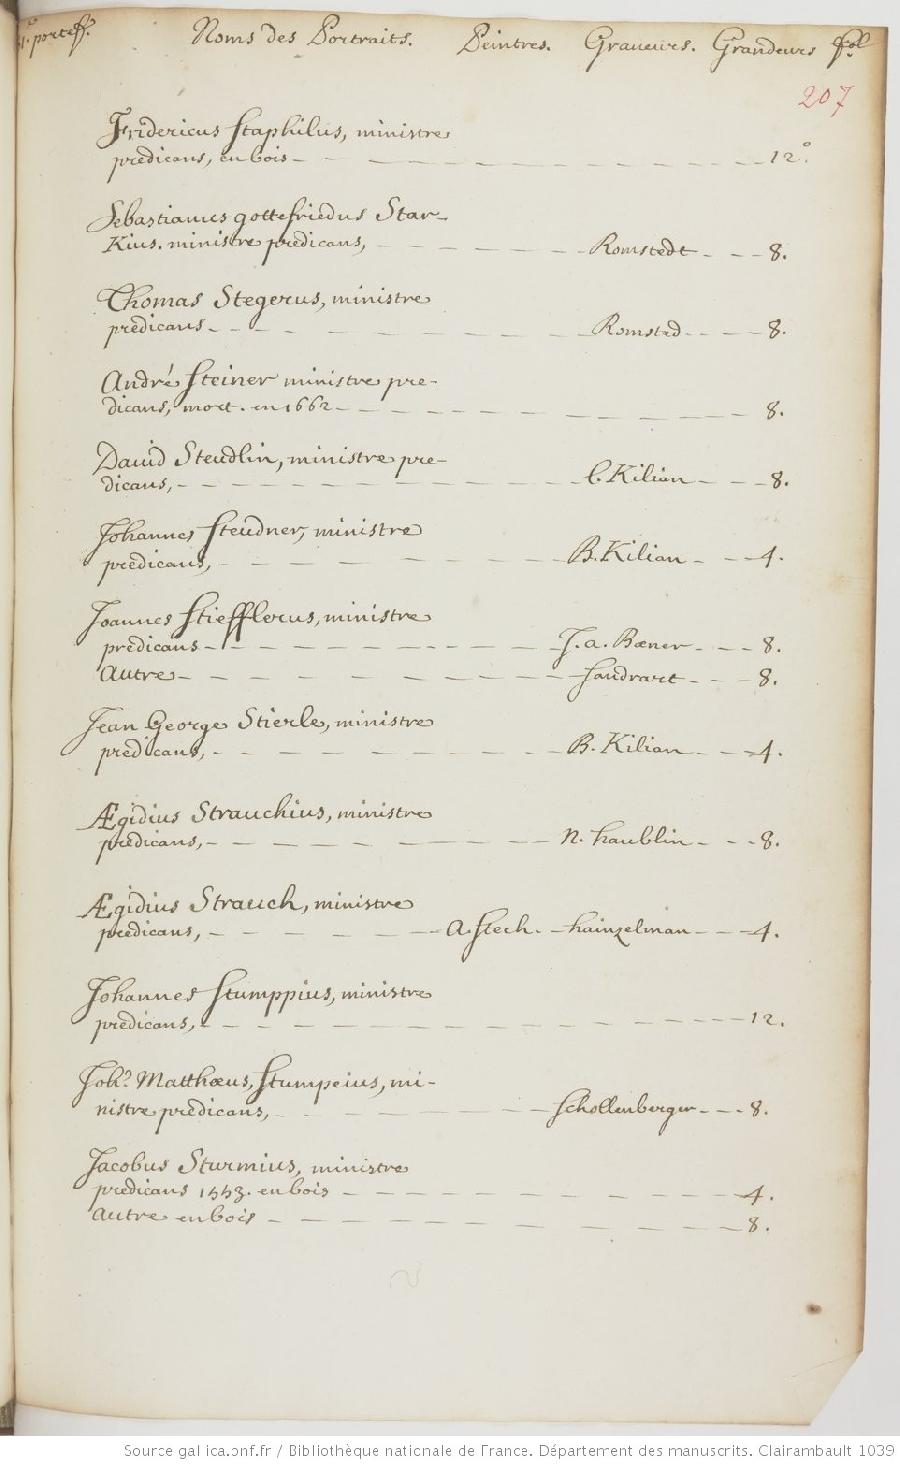 portef. Noms des Portraits. Peintres. Graveurs. Grandeurs fol
207
Fridericus Staphilus, ministre
predicans, en bois - 12°.
Sebastianus gottefriedus Star-
Kius. ministre predicans, Romstedt - 8.
Thomas Stegerus, ministre
predicans - Romsted - 8.
André Steiner ministre pre-
dicans, mort. en 1662 - 8.
David Steudlin, ministre pre-
dicans, - L. Kilian - 8.
Johannes Steudner, ministre
predicans, - B. Kilian - 4.
Joannes Stiefflerus, ministre
predicans - J. a. Bœner - 8.
Autre - Sandrart - 8.
Jean George Stierle, ministre
predicans, - B. Kilian - 4.
Ægidius Strauchius, ministre
predicans, - N. haublin - 8.
Ægidius Strauch, ministre
predicans, - A. Stech. - hainzelman - 4.
Johannes Stumppius, ministre
predicans, - 12.
Joh? Matthœus, Stumpeius, mi-
nistre predicans, - Schollenberger - 8.
Jacobus Sturmius, ministre
predicans 1553. en bois - 4.
Autre en bois - 8.
Source gallica.bnf.fr / Bibliothèque nationale de France. Département des manuscrits. Clairambault 1039